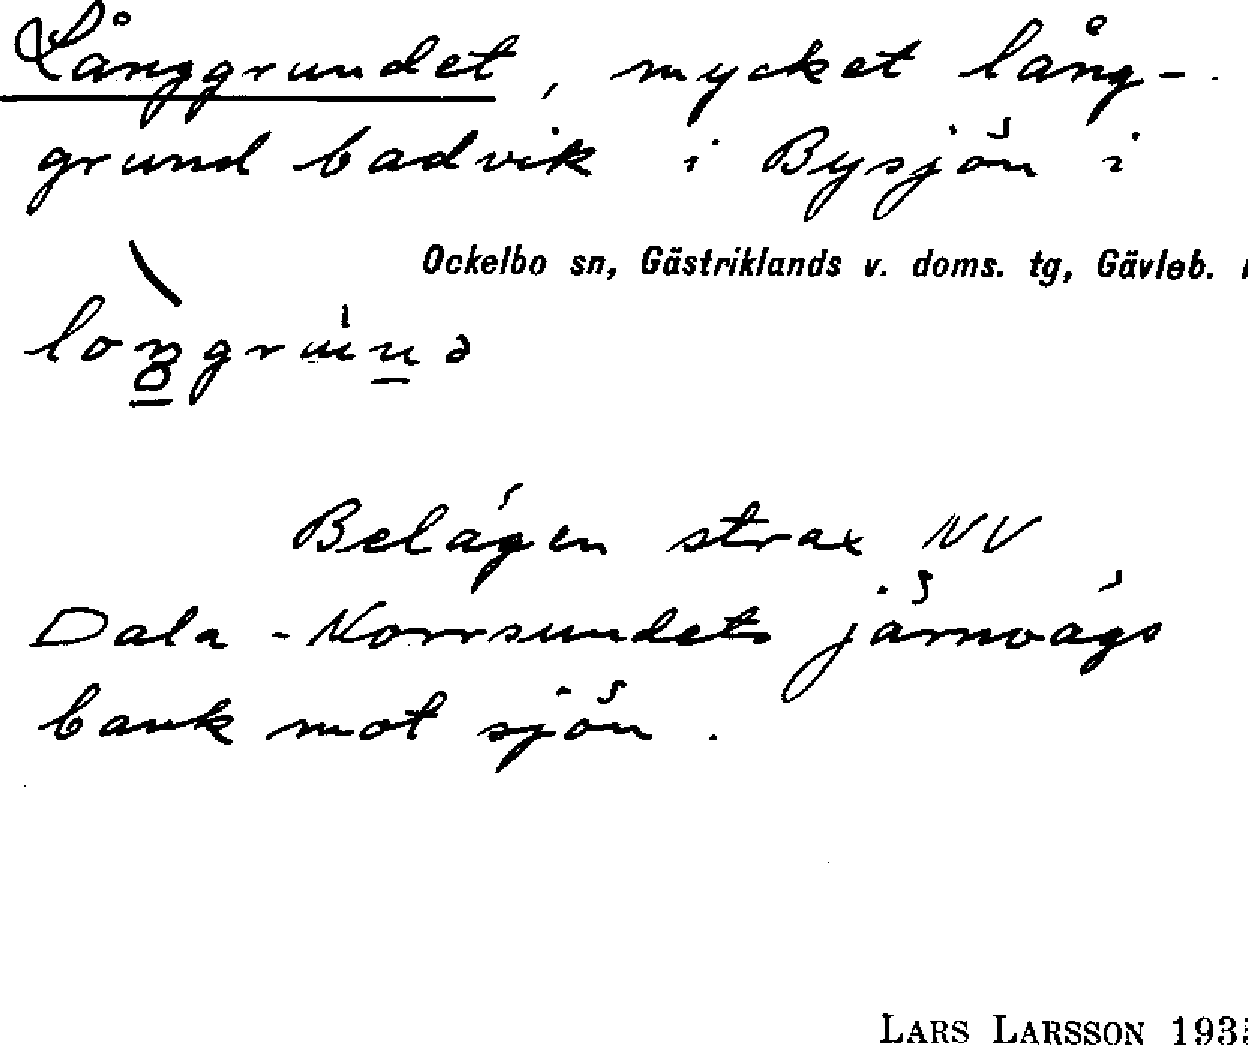 Långgrundet, mycket lång-
grund badvik i Bysjön i
Ockelbo sn, Gästriklands v. doms. tg, Gävleb.
Belägen strax NV
Dala-Norrsundets järnvägs
bank mot sjön.
LARS LARSSON 1935